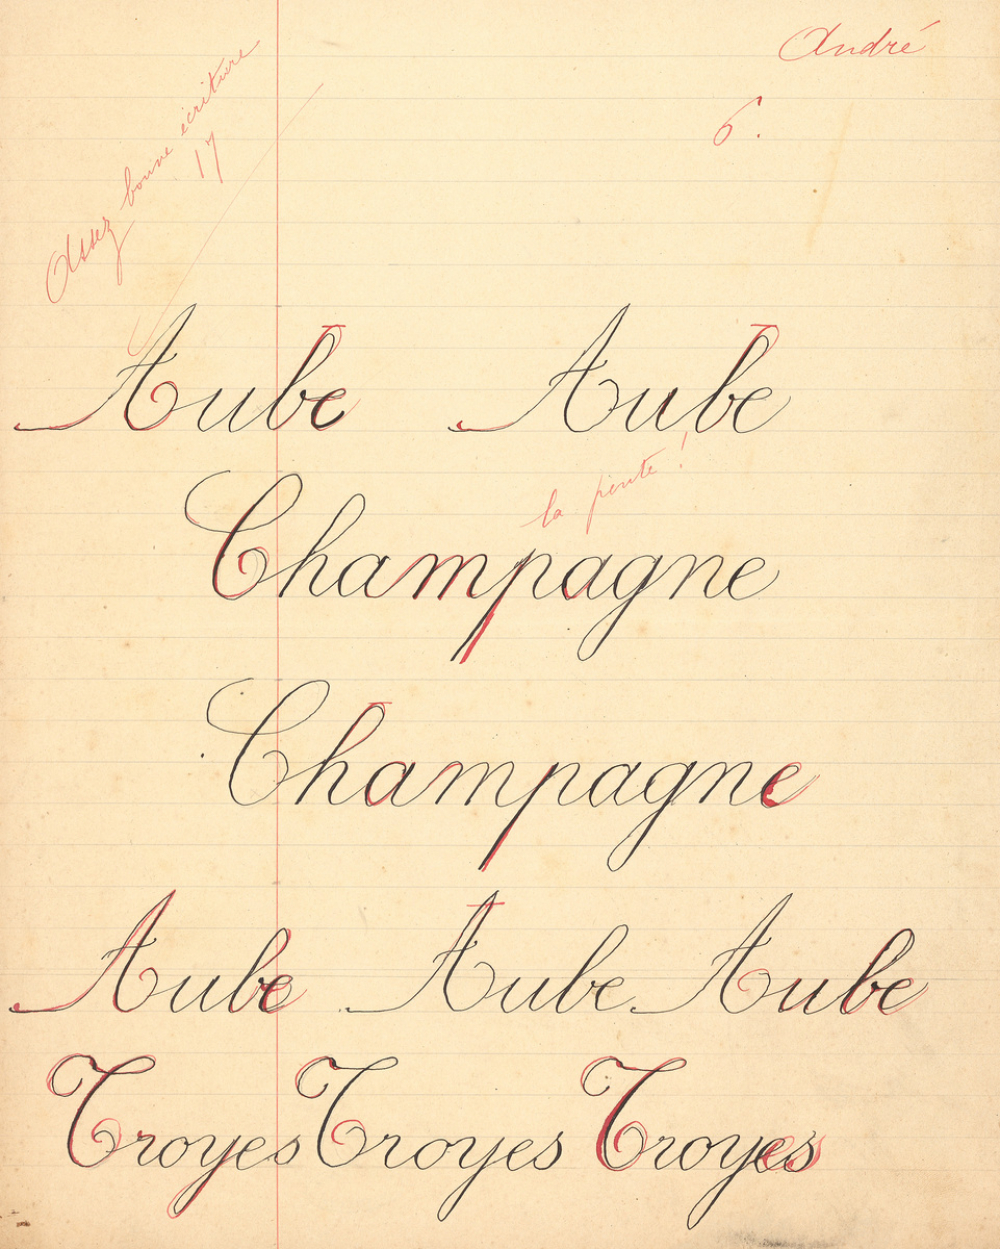 André
6.
Assez bonne écriture
17
Aube Aube
la pente !
Champagne
Champagne
Aube Aube Aube
Troyes Troyes Troyes